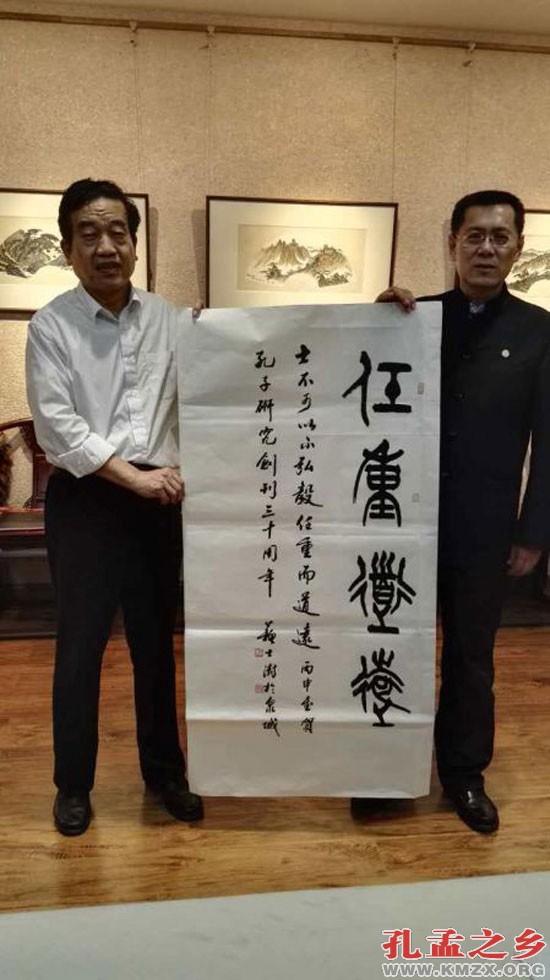 任重道遠
士不可以不弘毅任重而道遠 丙申賀
孔子研究創刊三十周年 蘇士澍於泉城
孔孟之乡
WWW.KMZX.ORG